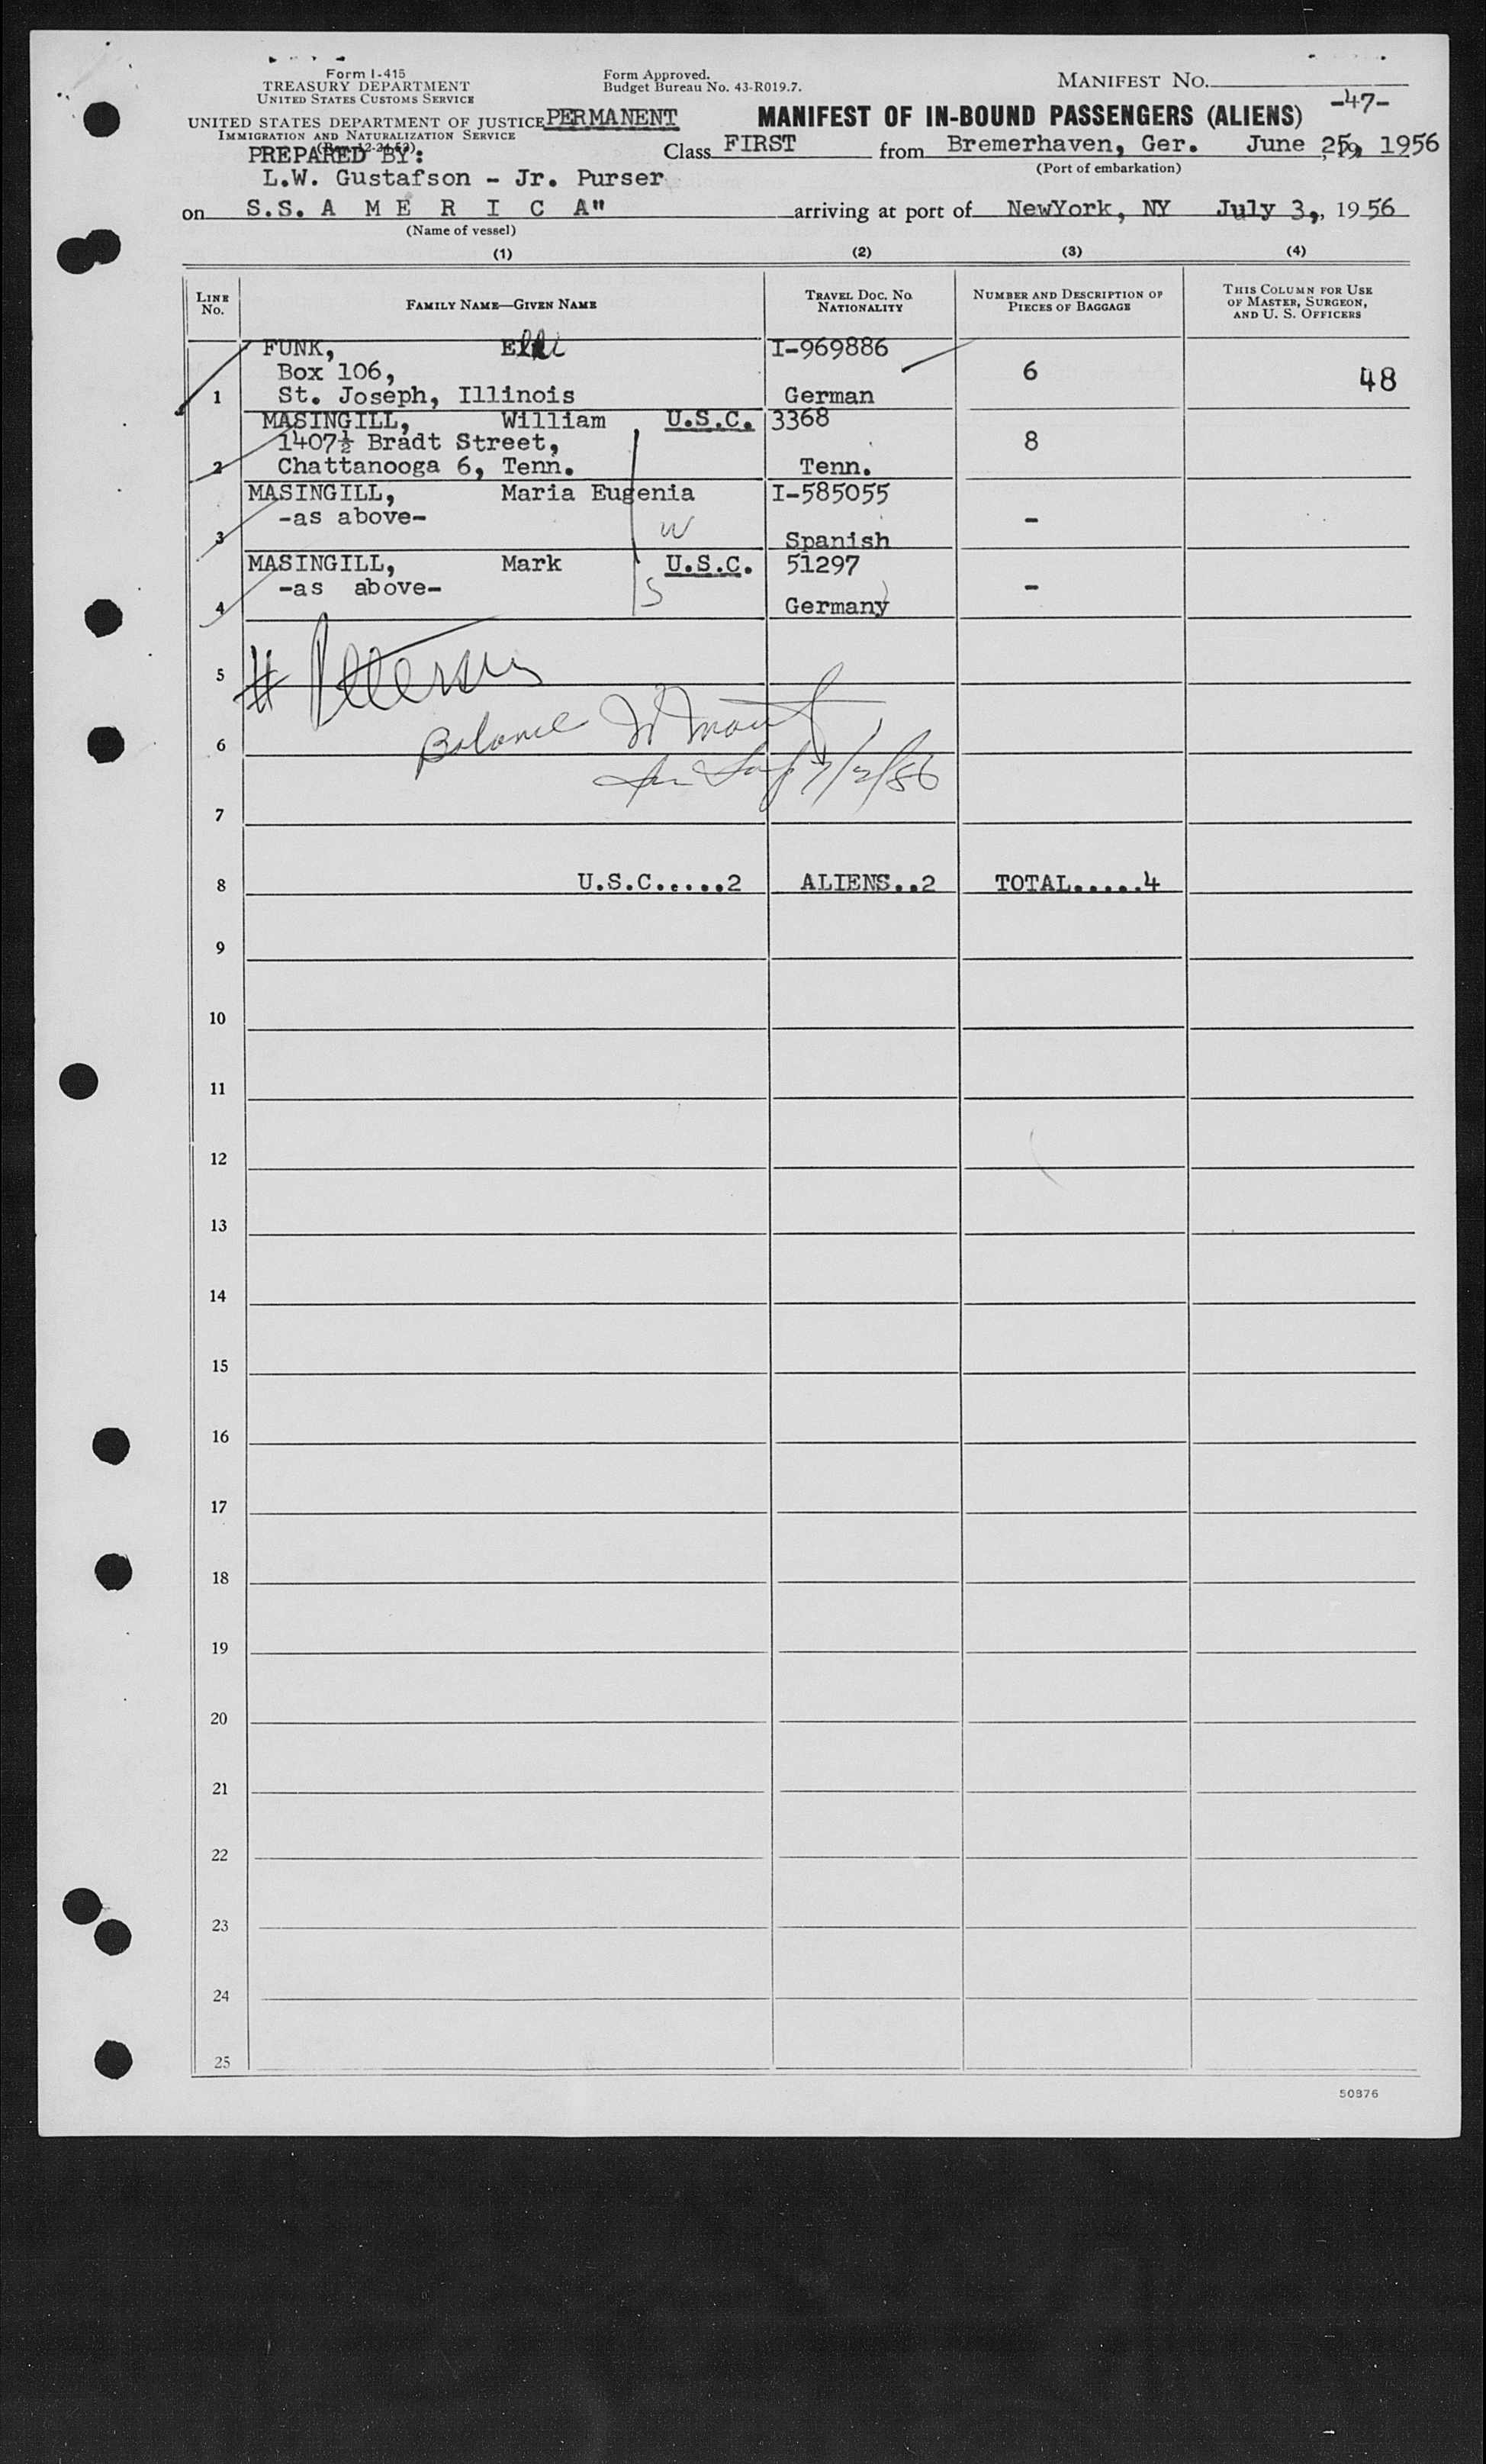 Form I-415
TREASURY DEPARTMENT
UNITED STATES CUSTOMS SERVICE
Form Approved.
Budget Bureau No. 43-R019.7.
MANIFEST NO.
-47-
UNITED STATES DEPARTMENT OF JUSTICE
IMMIGRATION AND NATURALIZATION SERVICE
PERMANENT
MANIFEST OF IN-BOUND PASSENGERS (ALIENS)
PREPARED BY:
L.W. Gustafson - Jr. Purser
Class FIRST from Bremerhaven, Ger. June 25, 1956
(Port of embarkation)
on S.S. A M E R I C A" arriving at port of NewYork, NY July 3,, 19 56
(Name of vessel)
(1) (2) (3) (4)
LINE NO.
FAMILY NAME—GIVEN NAME
TRAVEL DOC. NO.
NATIONALITY
NUMBER AND DESCRIPTION OF
PIECES OF BAGGAGE
THIS COLUMN FOR USE
OF MASTER, SURGEON,
AND U. S. OFFICERS
FUNK, Elli I-969886
Box 106, 6
1 St. Joseph, Illinois German 48
MASINGILL, William U.S.C. 3368
1407½ Bradt Street, 8
2 Chattanooga 6, Tenn. Tenn.
MASINGILL, Maria Eugenia I-585055
-as above- -
3 W Spanish
MASINGILL, Mark U.S.C. 51297
-as above- -
4 S Germany
5
Balance
6
7/2/56
7
8 U.S.C.....2 ALIENS..2 TOTAL.....4
9
10
11
12
13
14
15
16
17
18
19
20
21
22
23
24
25
50876